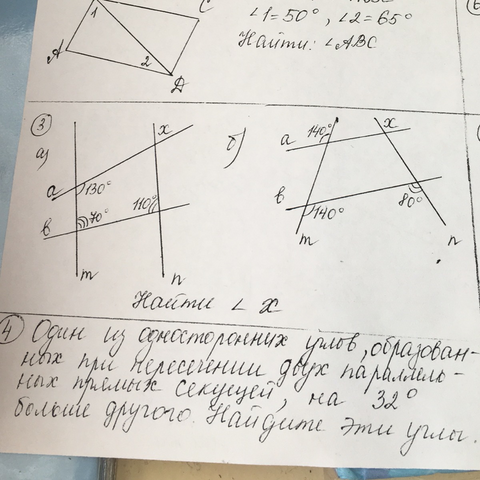 C
∠1=50°, ∠2=65°
Найти: ∠ABC
1
A
2
D
3
а)
x
a
130°
b
70°
110°
m
n
б)
a
140°
x
b
140°
80°
m
n
Найти ∠ x
4 Один из односторонних углов, образован-
ных при пересечении двух параллель-
ных прямых секущей, на 32°
больше другого. Найдите эти углы.